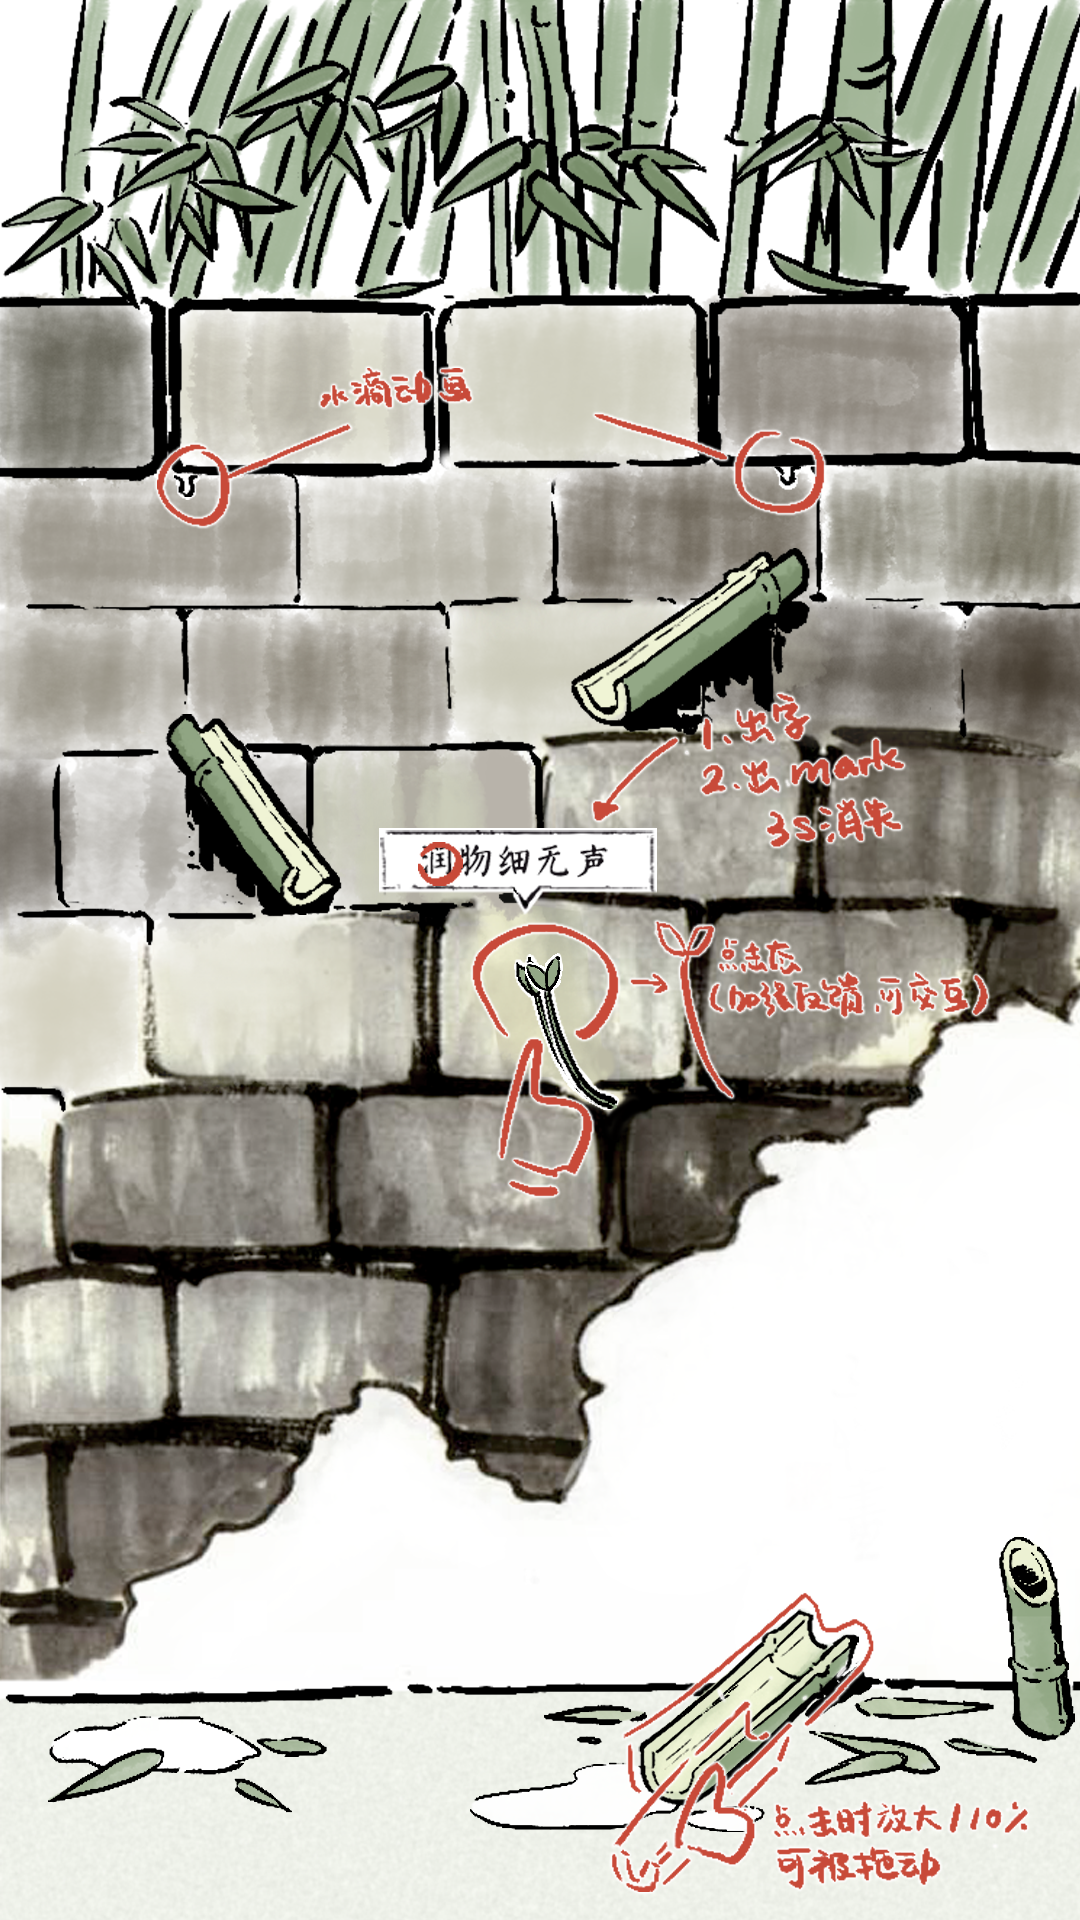 水滴动画
1、出字
2.出mark
3s消失
润物细无声
点击态
(加强反馈,可交互)
点击时放大110%
可被拖动